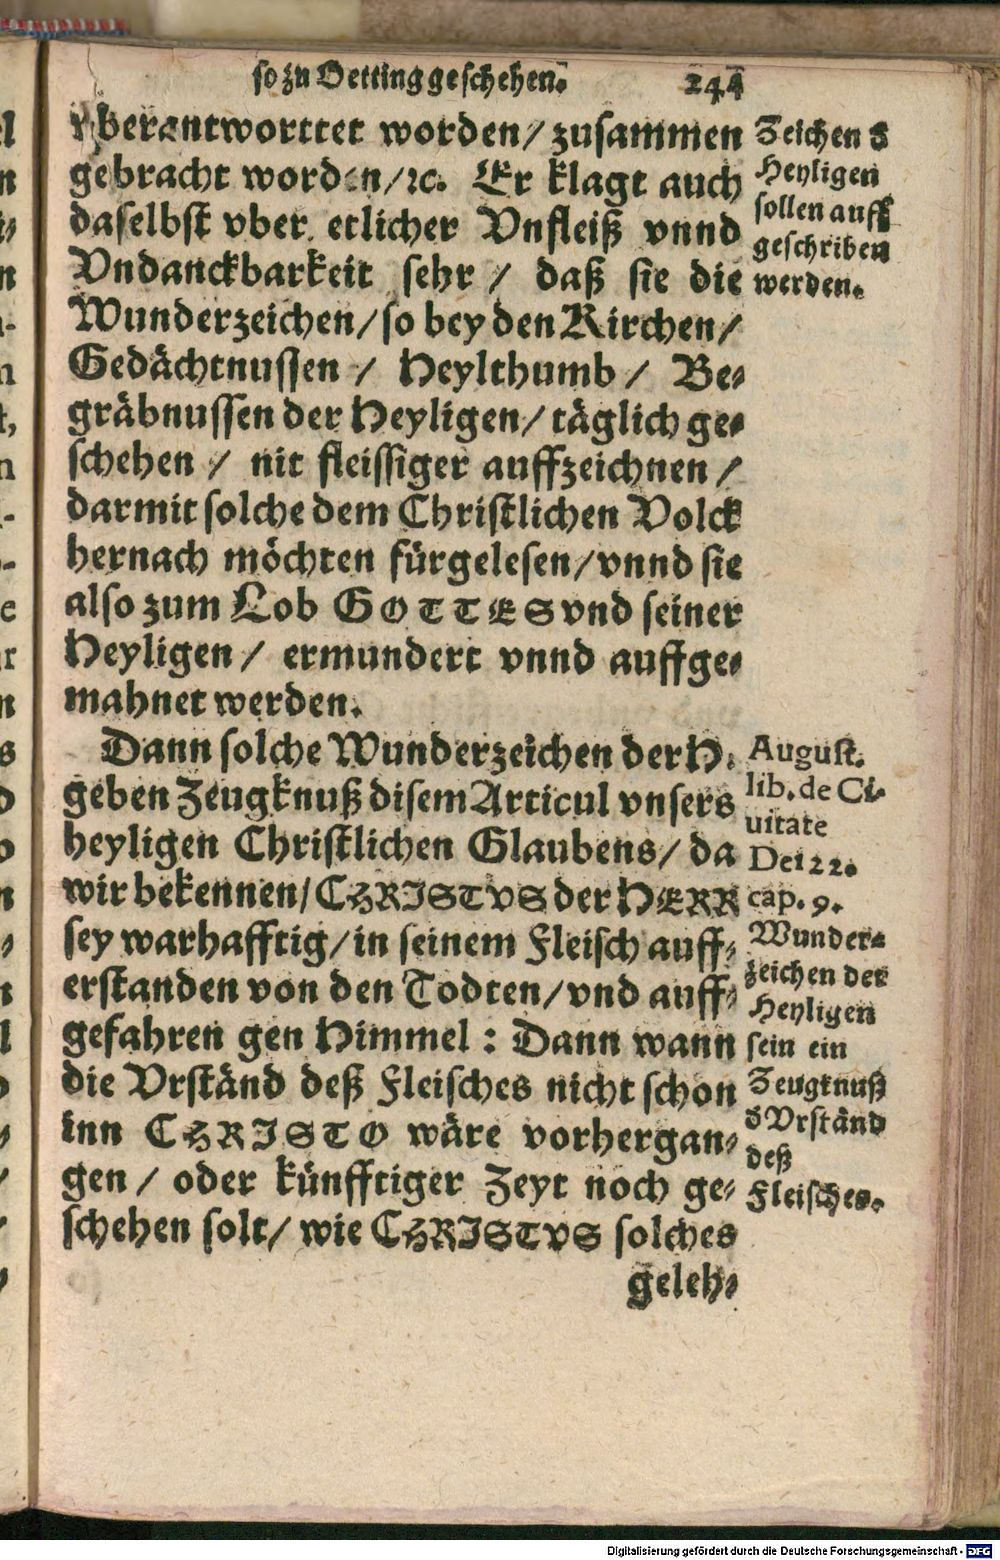 so zu Oetting geschehen. 244
vberantworttet worden/ zusammen
gebracht worden/ ꝛc. Er klagt auch
daselbst vber etlicher Vnfleiß vnnd
Vndanckbarkeit sehr / daß sie die
Wunderzeichen/ so bey den Kirchen/
Gedächtnussen / Heylthumb / Be-
gräbnussen der Heyligen/ täglich ge-
schehen / nit fleissiger auffzeichnen /
darmit solche dem Christlichen Volck
hernach möchten fürgelesen/ vnnd sie
also zum Lob GOTTES vnd seiner
Heyligen / ermundert vnnd auffge-
mahnet werden.
Zeichen d
Heyligen
sollen auff
geschriben
werden.
Dann solche Wunderzeichen der H.
geben Zeugknuß disem Articul vnsers
heyligen Christlichen Glaubens/ da
wir bekennen/ CHRISTVS der HERR
sey warhafftig/ in seinem Fleisch auff-
erstanden von den Todten/ vnd auff-
gefahren gen Himmel : Dann wann
die Vrständ deß Fleisches nicht schon
inn CHRISTO wäre vorhergan-
gen / oder künfftiger Zeyt noch ge-
schehen solt/ wie CHRISTVS solches
geleh-
August.
lib. de Ci-
uitate
Dei 22.
cap. 9.
Wunder-
zeichen der
Heyligen
sein ein
Zeugknuß
d Vrständ
deß
Fleisches.
Digitalisierung gefördert durch die Deutsche Forschungsgemeinschaft - DFG